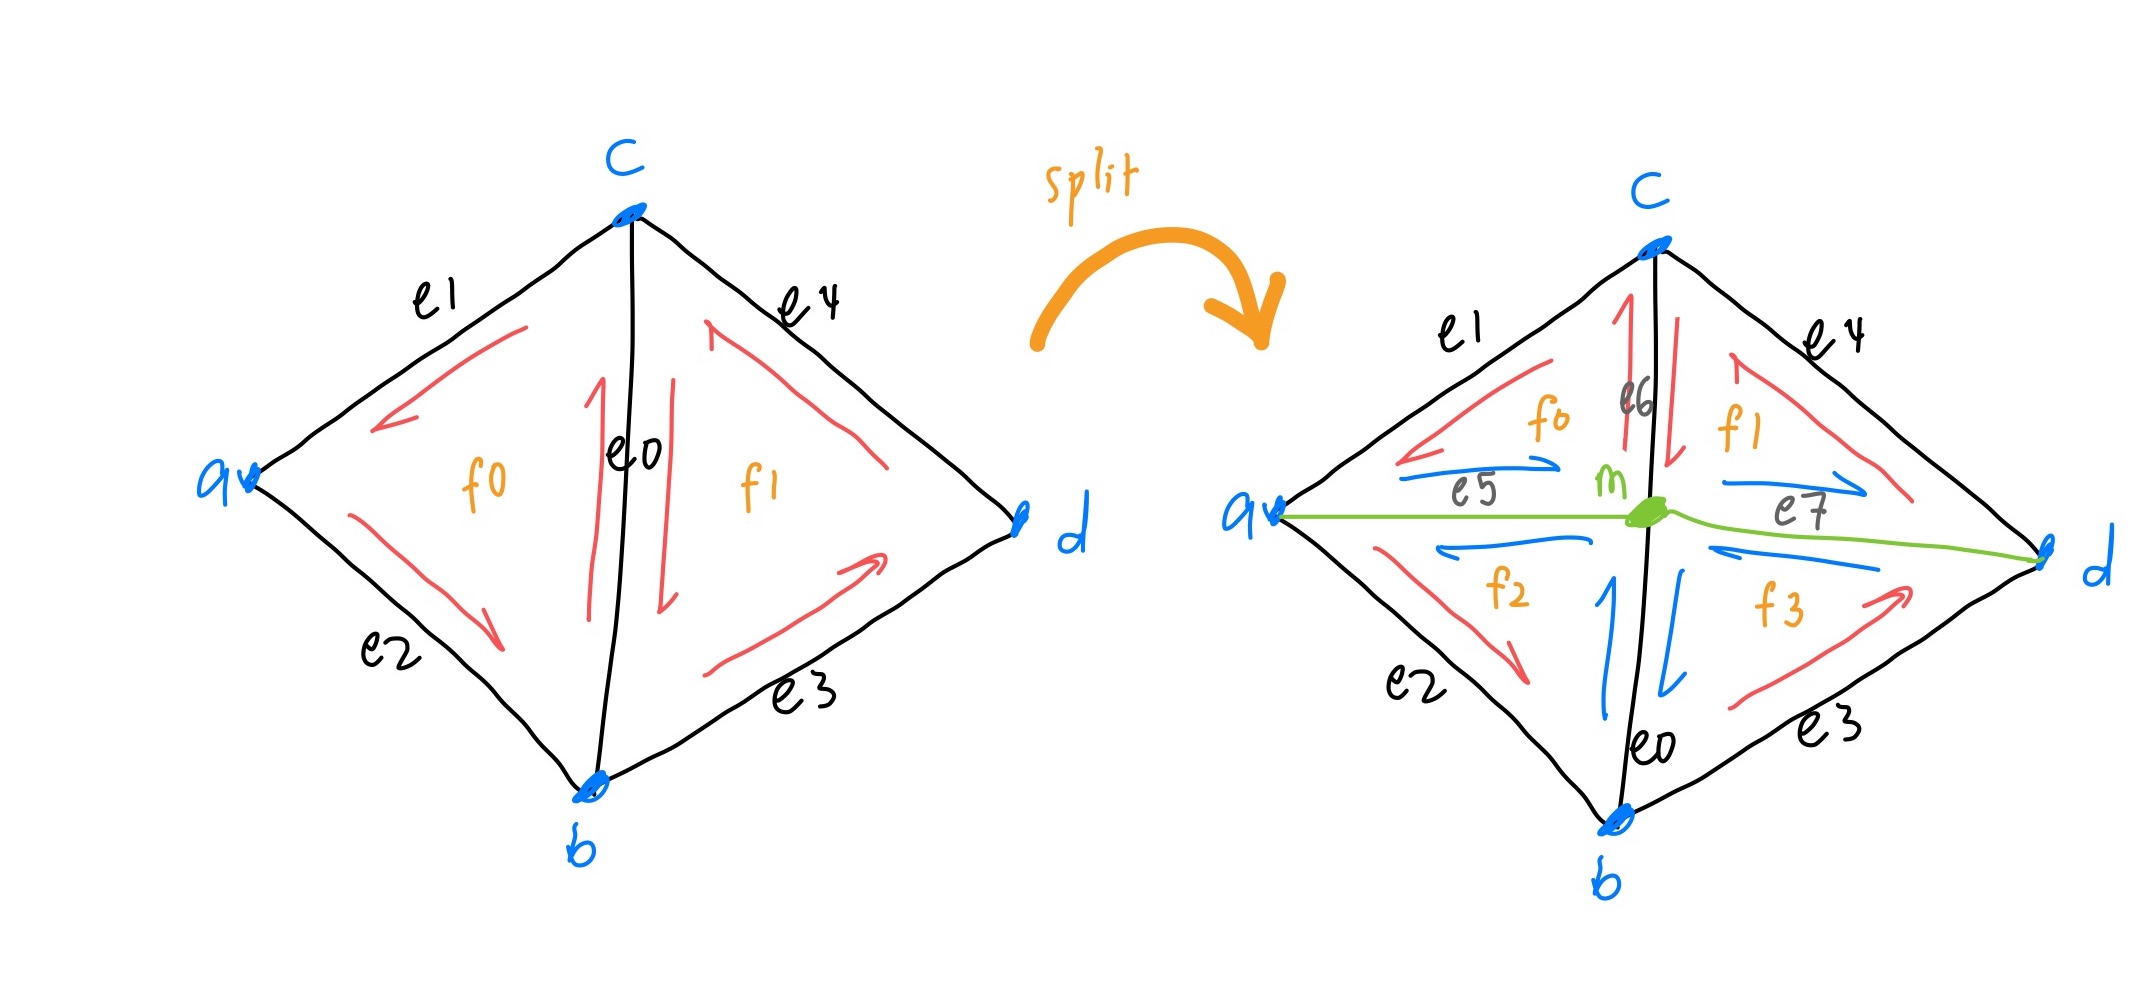 c
e1
e4
a
f0
e0
f1
d
e2
e3
b
split
c
e1
e4
f0
e6
f1
a
e5
m
e7
d
f2
f3
e2
e0
e3
b